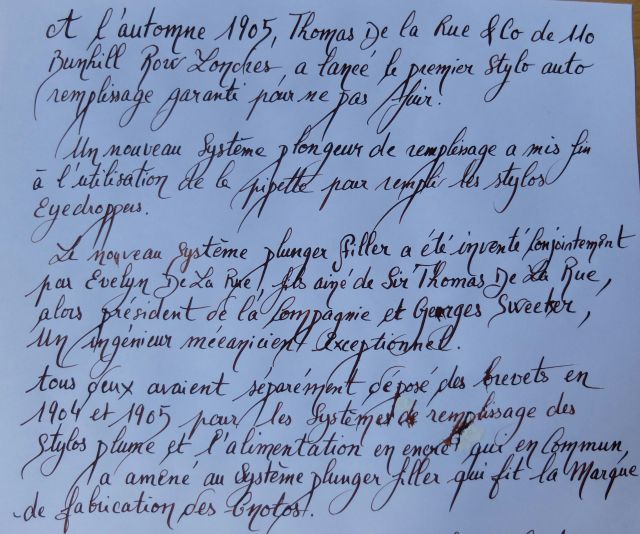 A l'automne 1905, Thomas De la Rue & Co de 110
Bunhill Row Londres a lancé le premier Stylo auto
remplissage garanti pour ne pas fuir.
Un nouveau Système plongeur de remplissage a mis fin
à l'utilisation de la pipette pour rempli les stylos
Eyedroppers.
Le nouveau système plunger filler a été inventé Conjointement
par Evelyn De La Rue, fils ainé de Sir Thomas De La Rue,
alors président de la Compagnie et Georges Sweetser,
Un ingénieur mécanicien Exceptionnel.
tous deux avaient séparément déposé des brevets en
1904 et 1905 pour les Systèmes de remplissage des
Stylos plume et l'alimentation en encre qui en Commun,
a amené au Système plunger filler qui fit la Marque
de fabrication des Onotos.